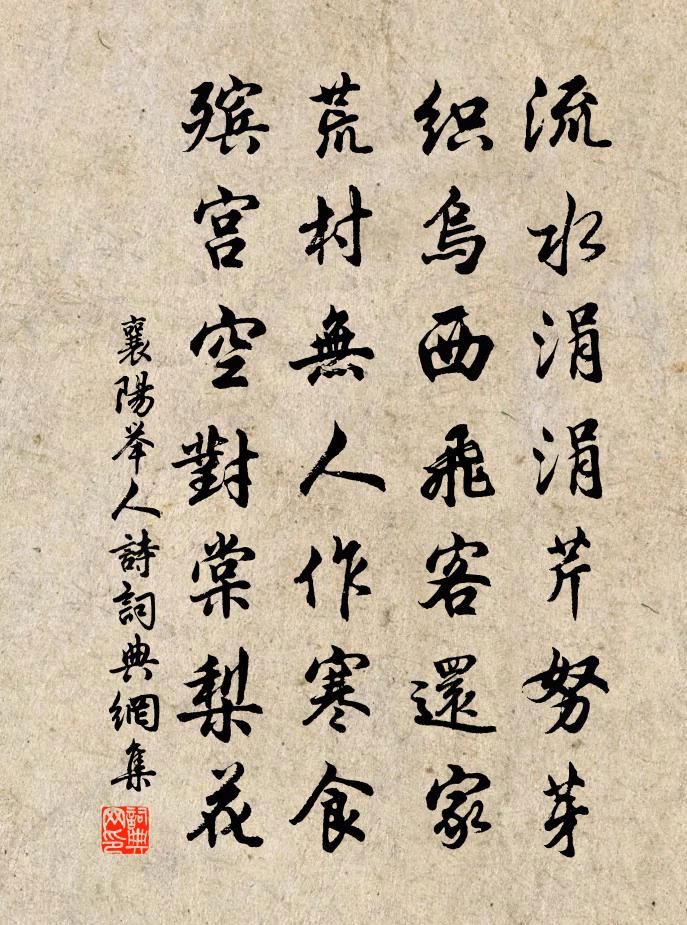 流水涓涓芹努芽
织烏西飛客還家
荒村無人作寒食
殡宫空對棠梨花
襄陽举人詩詞典網集
詞典網印